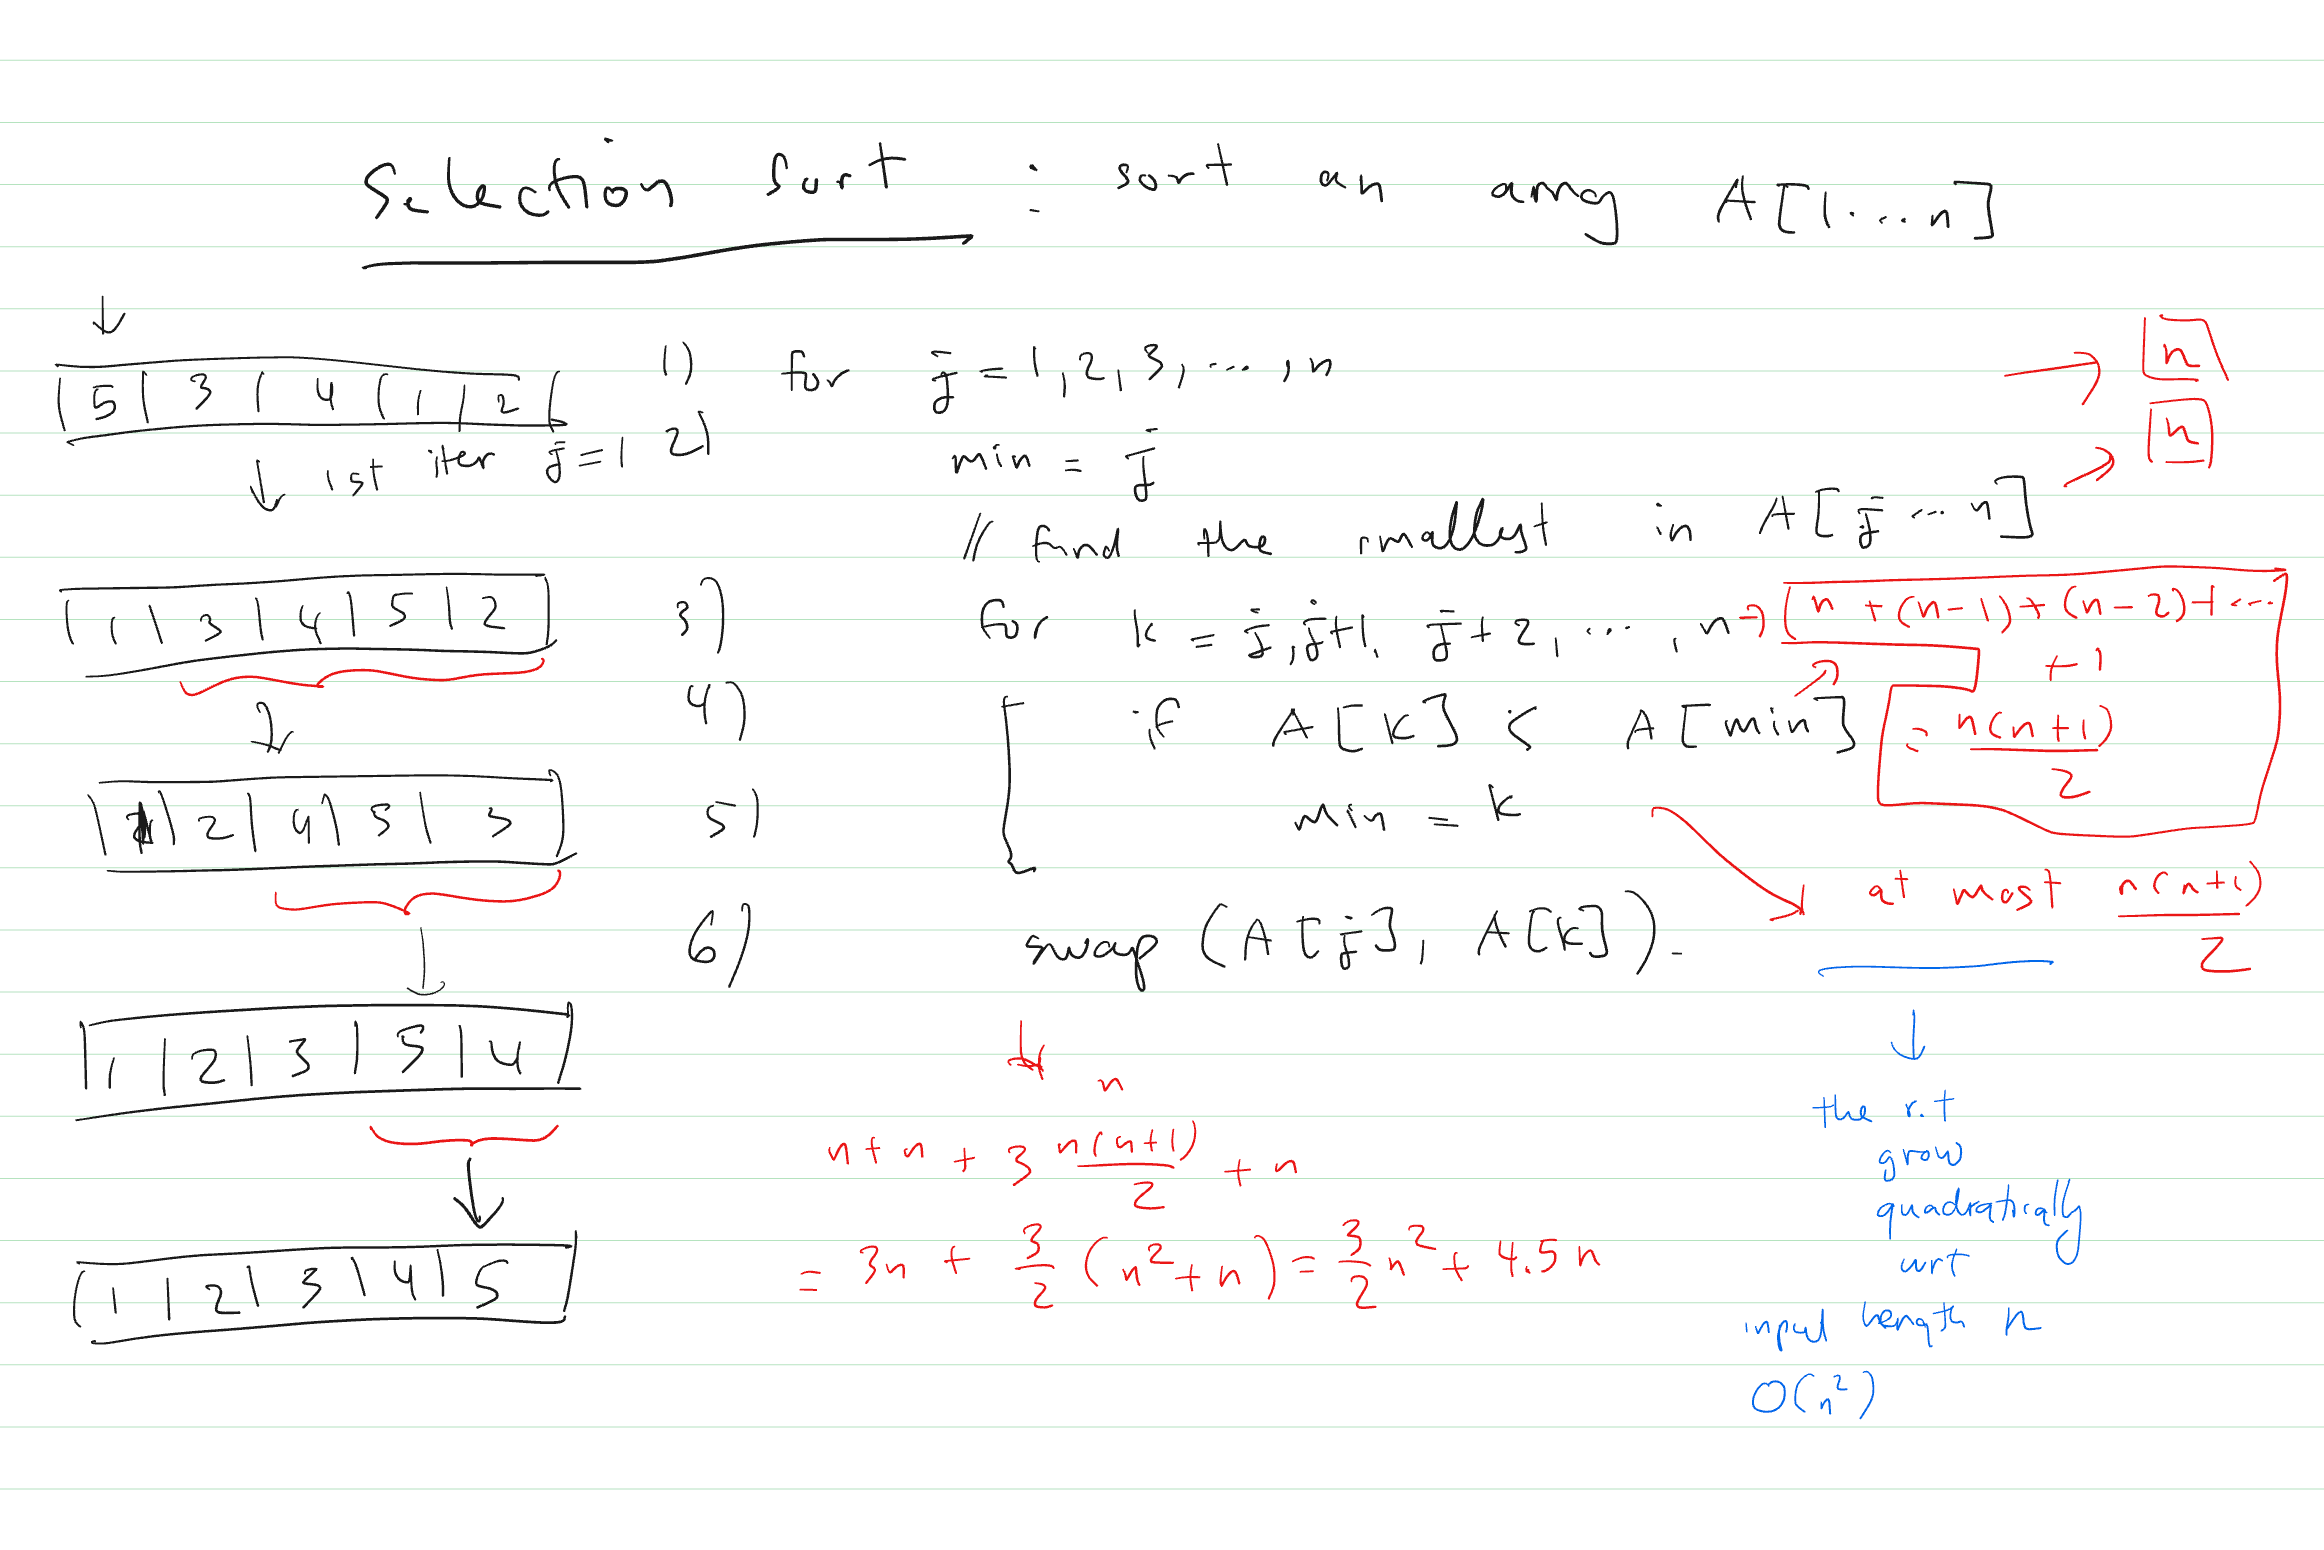 Selection Sort : sort an array A[1...n]
5 | 3 | 4 | 1 | 2
1) for j = 1, 2, 3, ..., n → n
1st iter j = 1
2) min = j → n
// find the smallest in A[j ... n]
1 | 3 | 4 | 5 | 2
3) for k = j, j+1, j+2, ..., n → n + (n-1) + (n-2) + ...
+ 1
= n(n+1)/2
4) if A[k] < A[min]
1 | 2 | 4 | 5 | 3
5) min = k
at most n(n+1)/2
6) swap (A[j], A[k]).
1 | 2 | 3 | 5 | 4
n
n + n + 3 n(n+1)/2 + n
= 3n + 3/2 (n² + n) = 3/2 n² + 4.5 n
1 | 2 | 3 | 4 | 5
the r.t
grow
quadratically
wrt
input length n
O(n²)